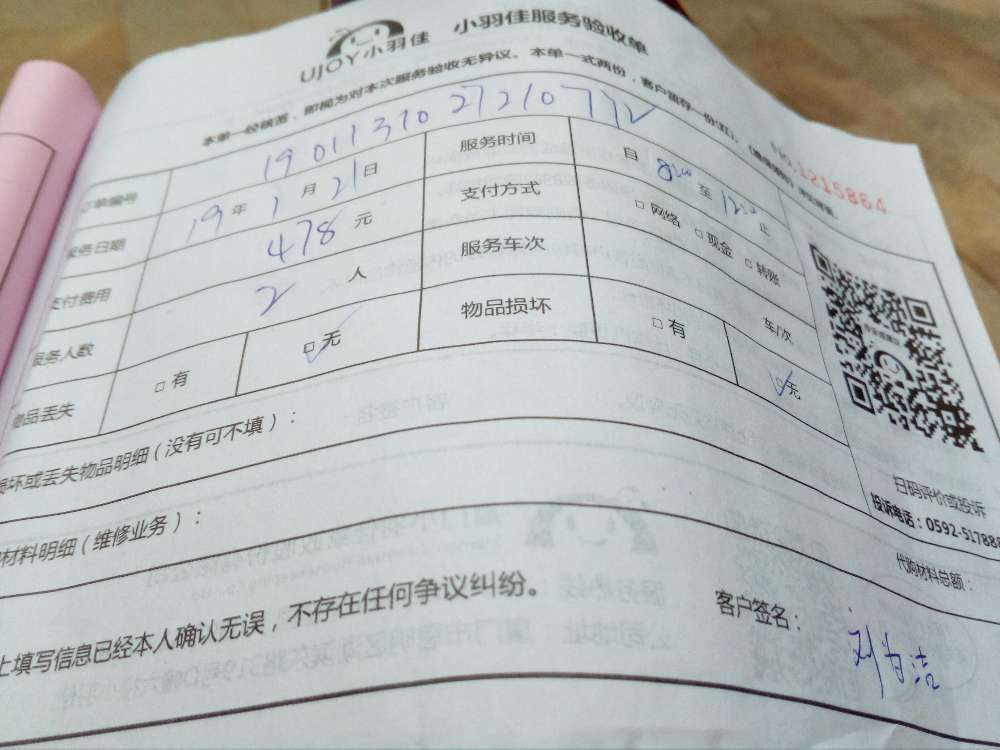 UJOY小羽佳 小羽佳服务验收单
本单一经核签，即视为对本次服务验收无异议。本单一式两份，客户留存一份(红)。
NO.1215864
订单编号 1901137027210772
服务日期 19年1月21日 服务时间 自 8:00 至 12:00 止
支付费用 478元 支付方式 □网络 □现金 □转账
服务人数 2人 服务车次 车/次
物品丢失 □有 □无 物品损坏 □有 □无
损坏或丢失物品明细(没有可不填)：
材料明细(维修业务)：
代购材料总额：
上填写信息已经本人确认无误，不存在任何争议纠纷。
客户签名：
扫码评价或投诉
投诉电话：0592-517888